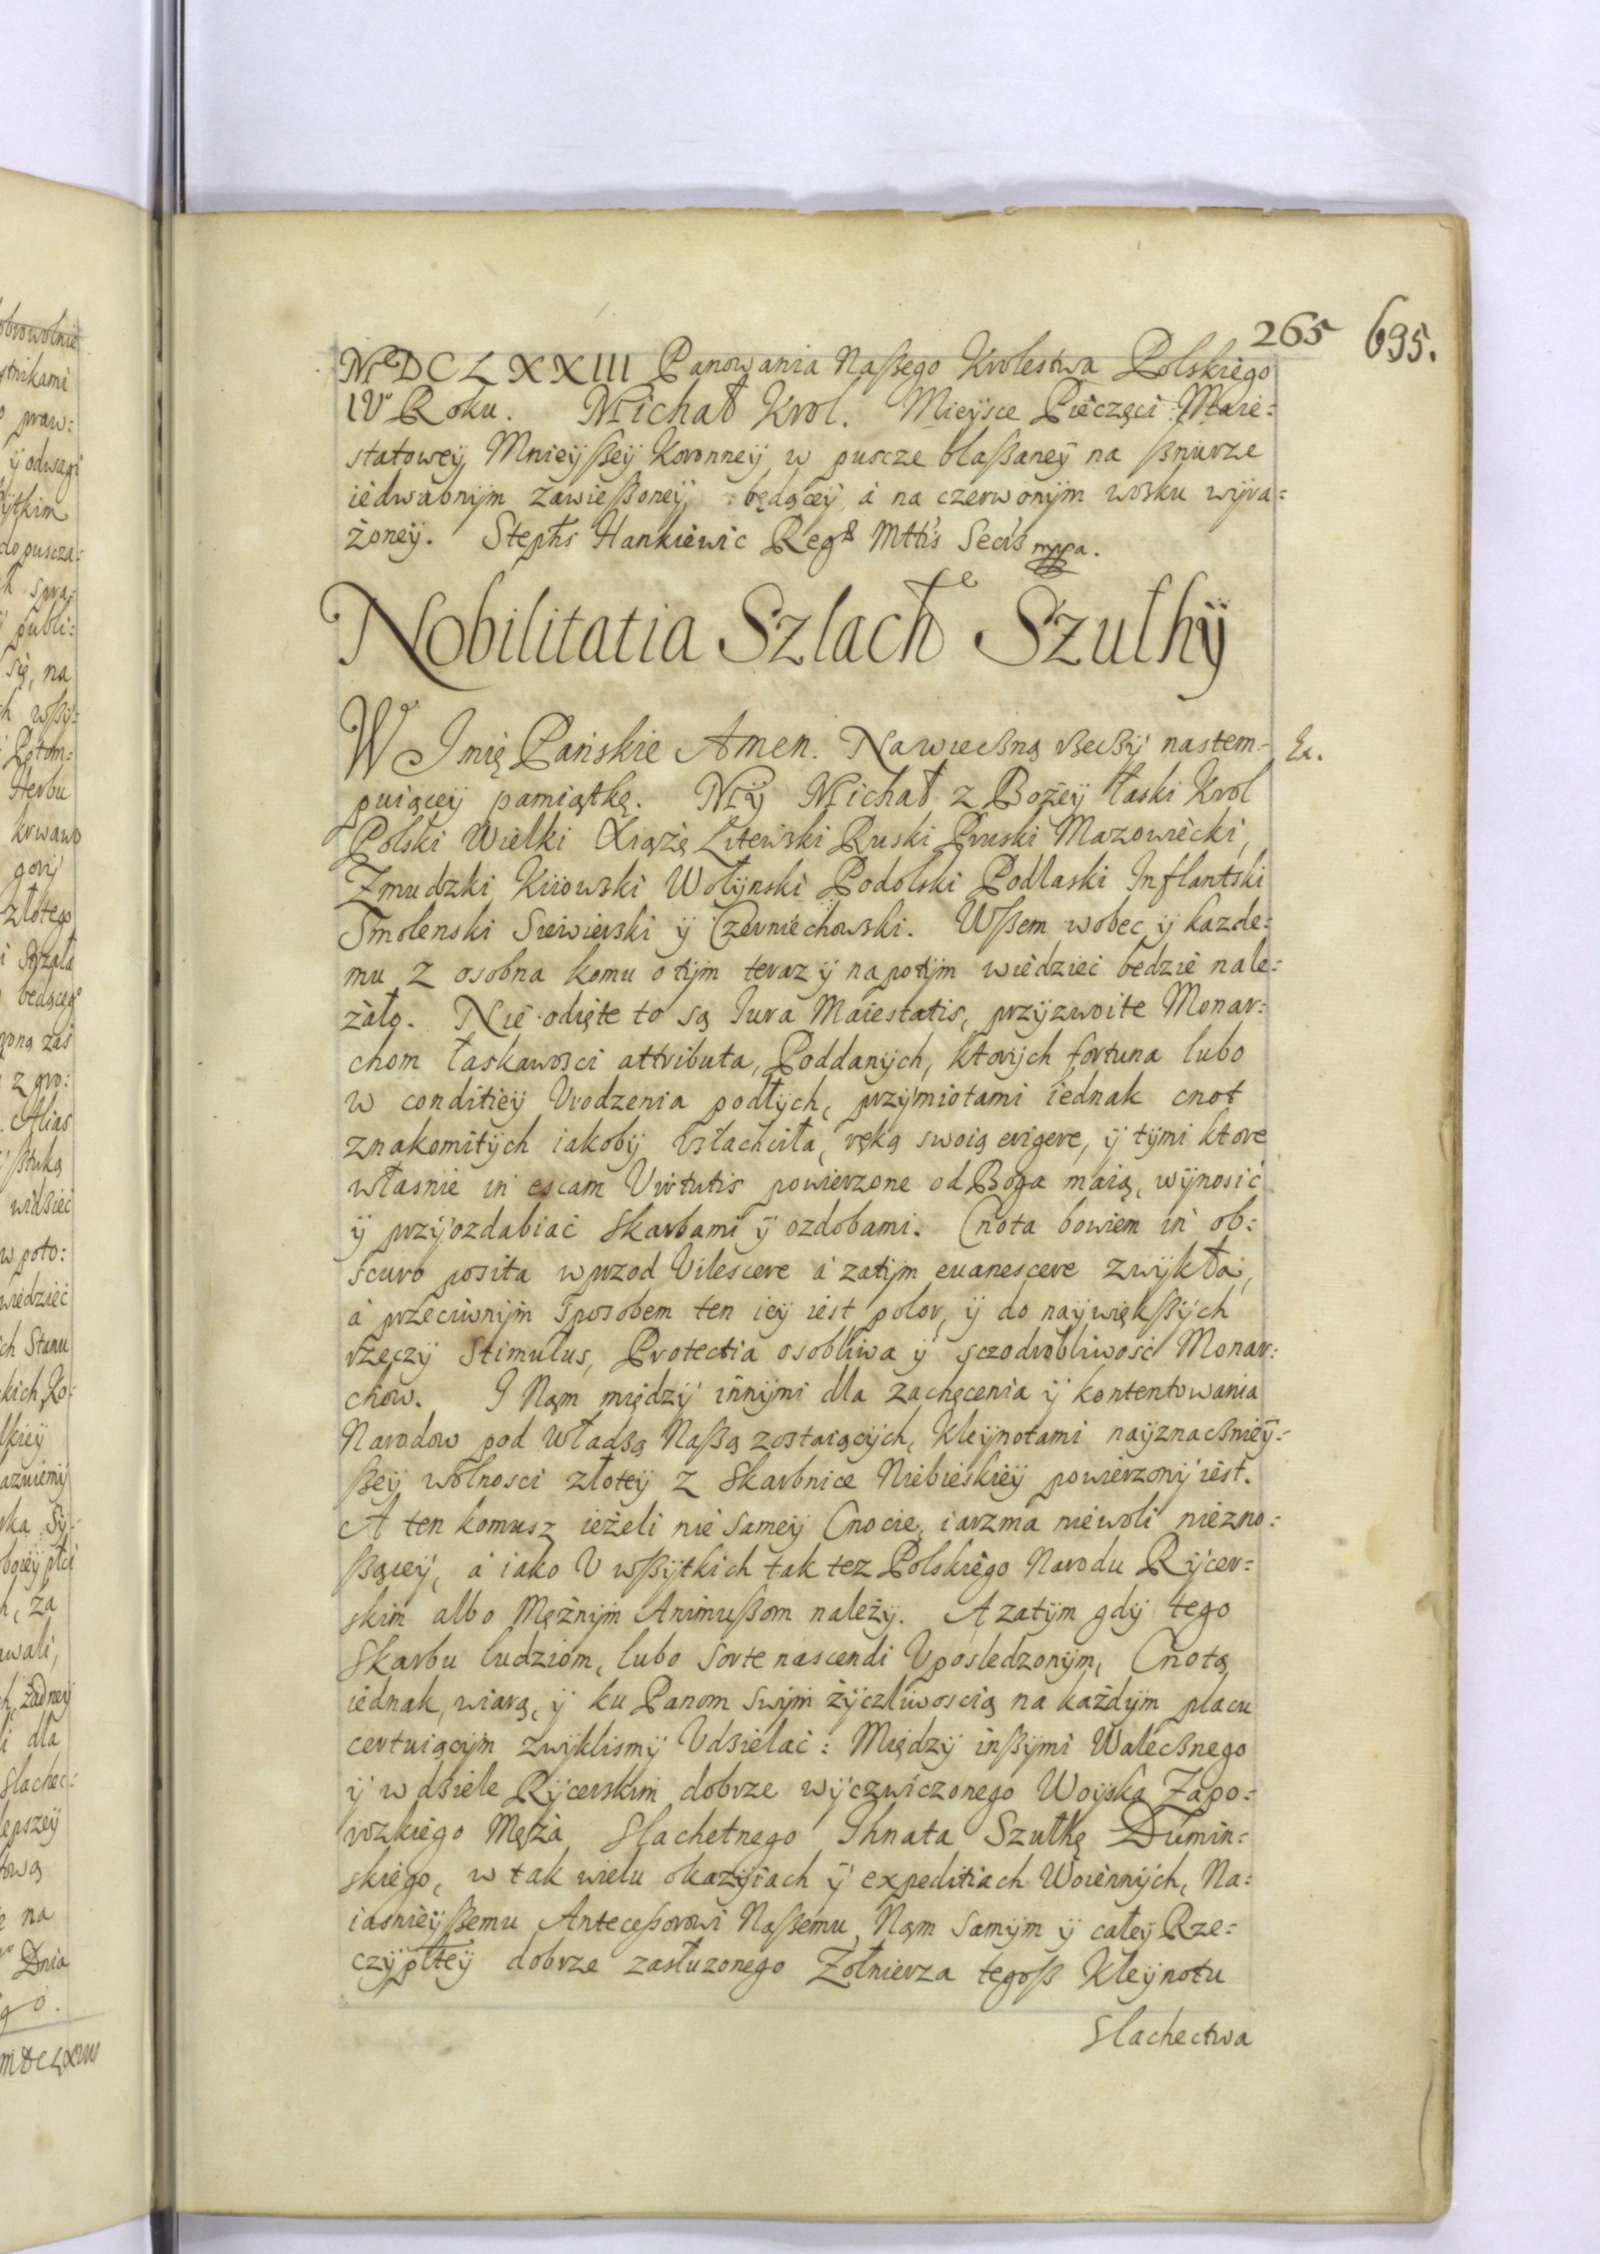 265 695.
MDCLXXIII Panowania Naßego Krolestwa Polskiego
IVo Roku. Michał Krol. Mieysce Pieczęci Maie=
statowey Mnieyßey Koronney w puscze blaßaney na ßnurze
iedwabnym zawießoney, będącey á na czerwonym wosku wyra=
żoney. Stephs Hankiewic Regs Mttis Secris mppa.
Nobilitatia Szlachte Szulhy
W Imię Pańskie Amen. Nawiecßną rßecßy nastem- Ex.
puiącey pamiątkę. My Michał z Bożey łaski Krol
Polski Wielki Xiążę Litewski Ruski Pruski Mazowiecki,
Zmudzki Kiiowski Wołynski Podolski Podlaski Inflantski
Smolenski Siewierski y Czerniechowski. Wßem wobec y kazde=
mu z osobna komu o tym teraz y napotym wiedzieć będzie nale=
żało. Nie odięte to są Jura Maiestatis, przyzwoite Monar=
chom łaskawosci attributa, Poddanych, ktorych fortuna lubo
w conditiey Urodzenia podłych, przymiotami iednak cnot
znakomitych iakoby Uslachciła, ręką swoią erigere, y tymi ktore
własnie in escam Virtutis powierzone od Boga maią, wynosić
y przyozdabiać skarbami y ozdobami. Cnota bowiem in ob=
scuro posita wprzod Vilescere á zatym euanescere zwykła,
á przeciwnym sposobem ten iey iest polor, y do naywiękßych
rzęczy Stimulus, Protectia osobliwa y sczodrobliwość Monar=
chow. I Nąm między innymi dla zachęcenia y kontentowania
Narodow pod władßą Naßą zostaiących, Kleynotami nayznacßniey=
ßey wolnosci złotey z skarbnice Niebieskiey powierzony iest.
A ten komusz ieżeli nie samey Cnocie, iarzma niewoli niezno=
ßącey, á iako U wßytkich tak tez Polskiego Narodu Rycer=
skim albo Mężnym Animußom należy. A zatym gdy tego
skarbu ludziom, lubo sorte nascendi Uposledzonym, Cnotą
iednak, wiarą, y ku Panom swym życzliwoscią na każdym placu
certuiącym zwyklismy Udßielać: Między inßymi Walecßnego
y w dßiele Rycerskim dobrze wyczwiczonego Woyska Zapo=
rozkiego Męża Slachetnego Ihnata Szulhę Dumin=
skiego, w tak wielu okazyiach y expeditiach Woiennych, Na=
iasnieyßemu Antecessorowi Naßemu, Nąm samym y całey Rze=
czypltey dobrze zasłuzonego Żołnierza tegoß Kleynotu
Slachectwa